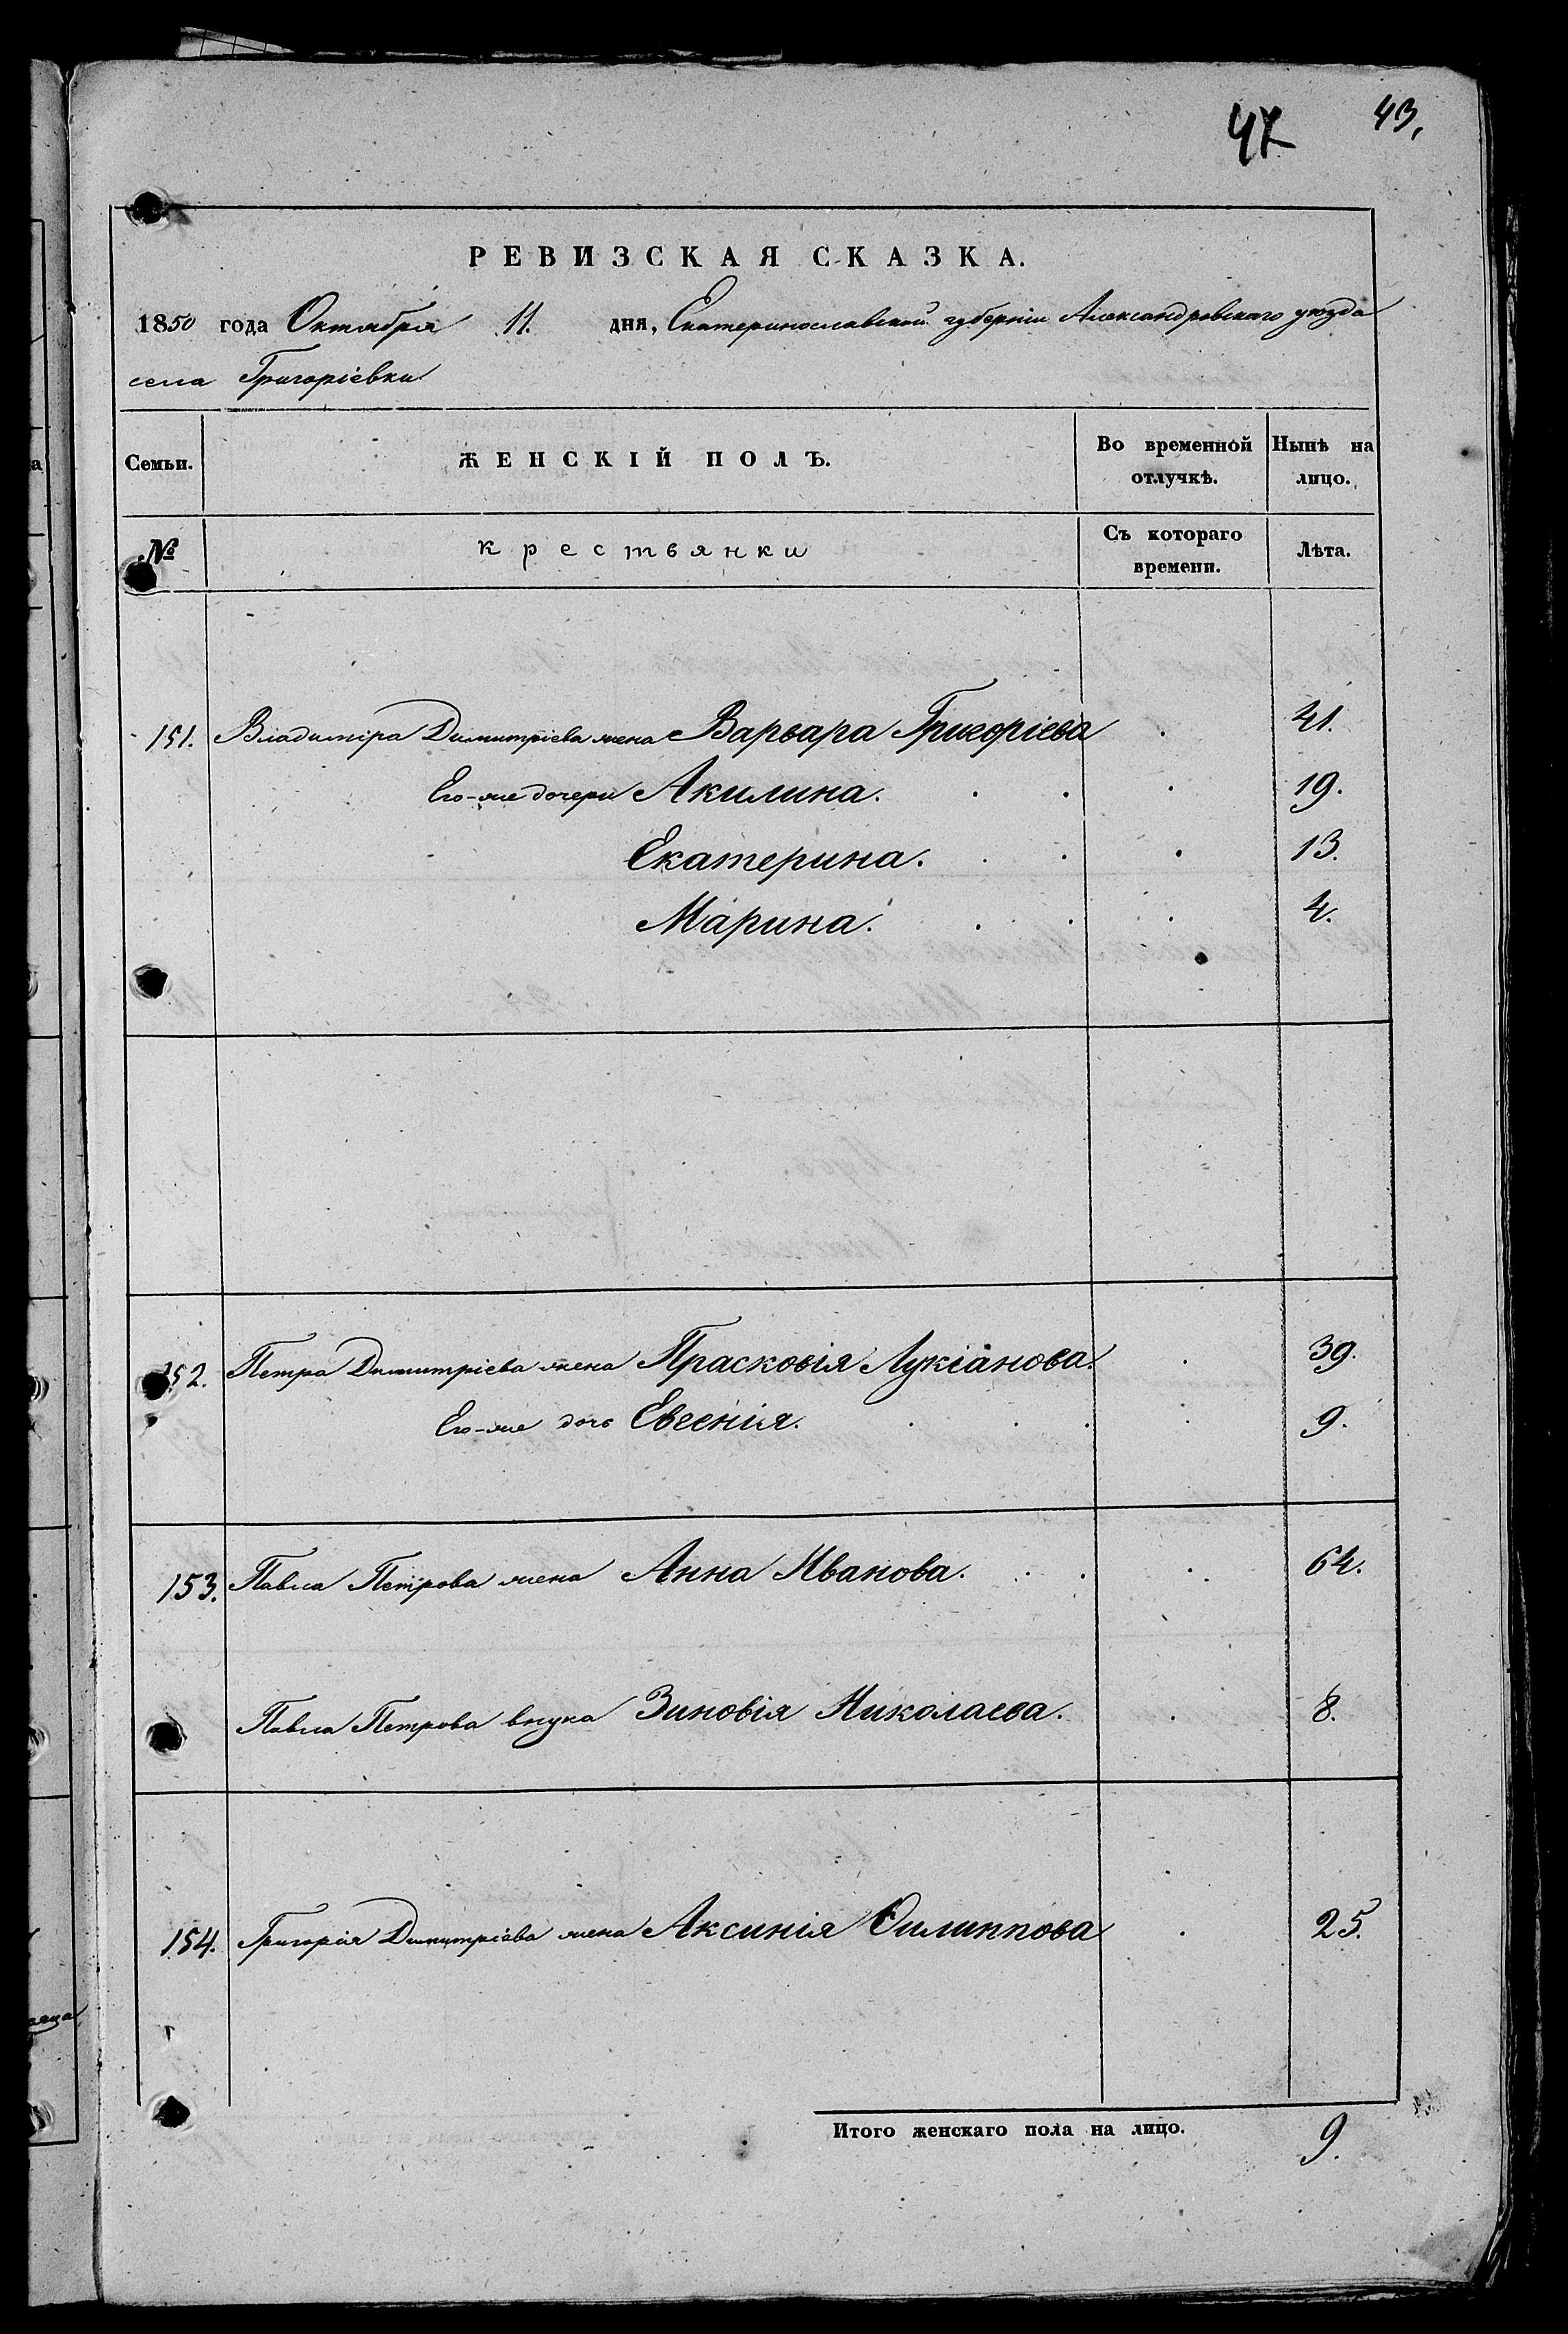 47 43,
РЕВИЗСКАЯ СКАЗКА.
1850 года Октября 11. дня, Екатеринославской губерніи Александровскаго уѣзда
села Григоріевки
Семьи. ЖЕНСКІЙ ПОЛЪ. Во временной отлучкѣ. Нынѣ на лицо.
№ крестьянки Съ котораго времени. Лѣта.
151. Владиміра Димитріева жена Варвара Григоріева 41.
Его-же дочери Акилина. 19.
Екатерина. 13.
Марина. 4.
152. Петра Димитріева жена Прасковія Лукіанова. 39.
Его-же дочь Евгенія. 9.
153. Павла Петрова жена Анна Иванова. 64.
Павла Петрова внука Зиновія Николаева. 8.
154. Григорія Димитріева жена Аксинія Филиппова 25.
Итого женскаго пола на лицо. 9.